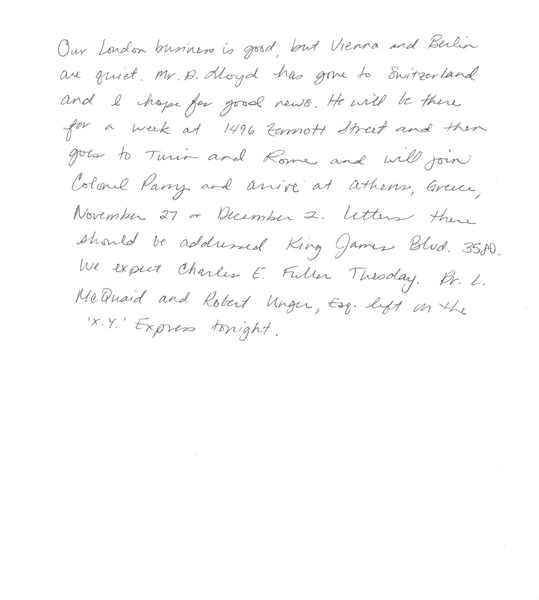 Our London business is good, but Vienna and Berlin
are quiet. Mr. D. Lloyd has gone to Switzerland
and I hope for good news. He will be there
for a week at 1496 Zermott Street and then
goes to Turin and Rome and will join
Colonel Parry and arrive at Athens, Greece,
November 27 or December 2. Letters there
should be addressed King James Blvd. 3580.
We expect Charles E. Fuller Tuesday. Dr. L.
McQuaid and Robert Unger, Esq. left on the
'X.Y.' Express tonight.